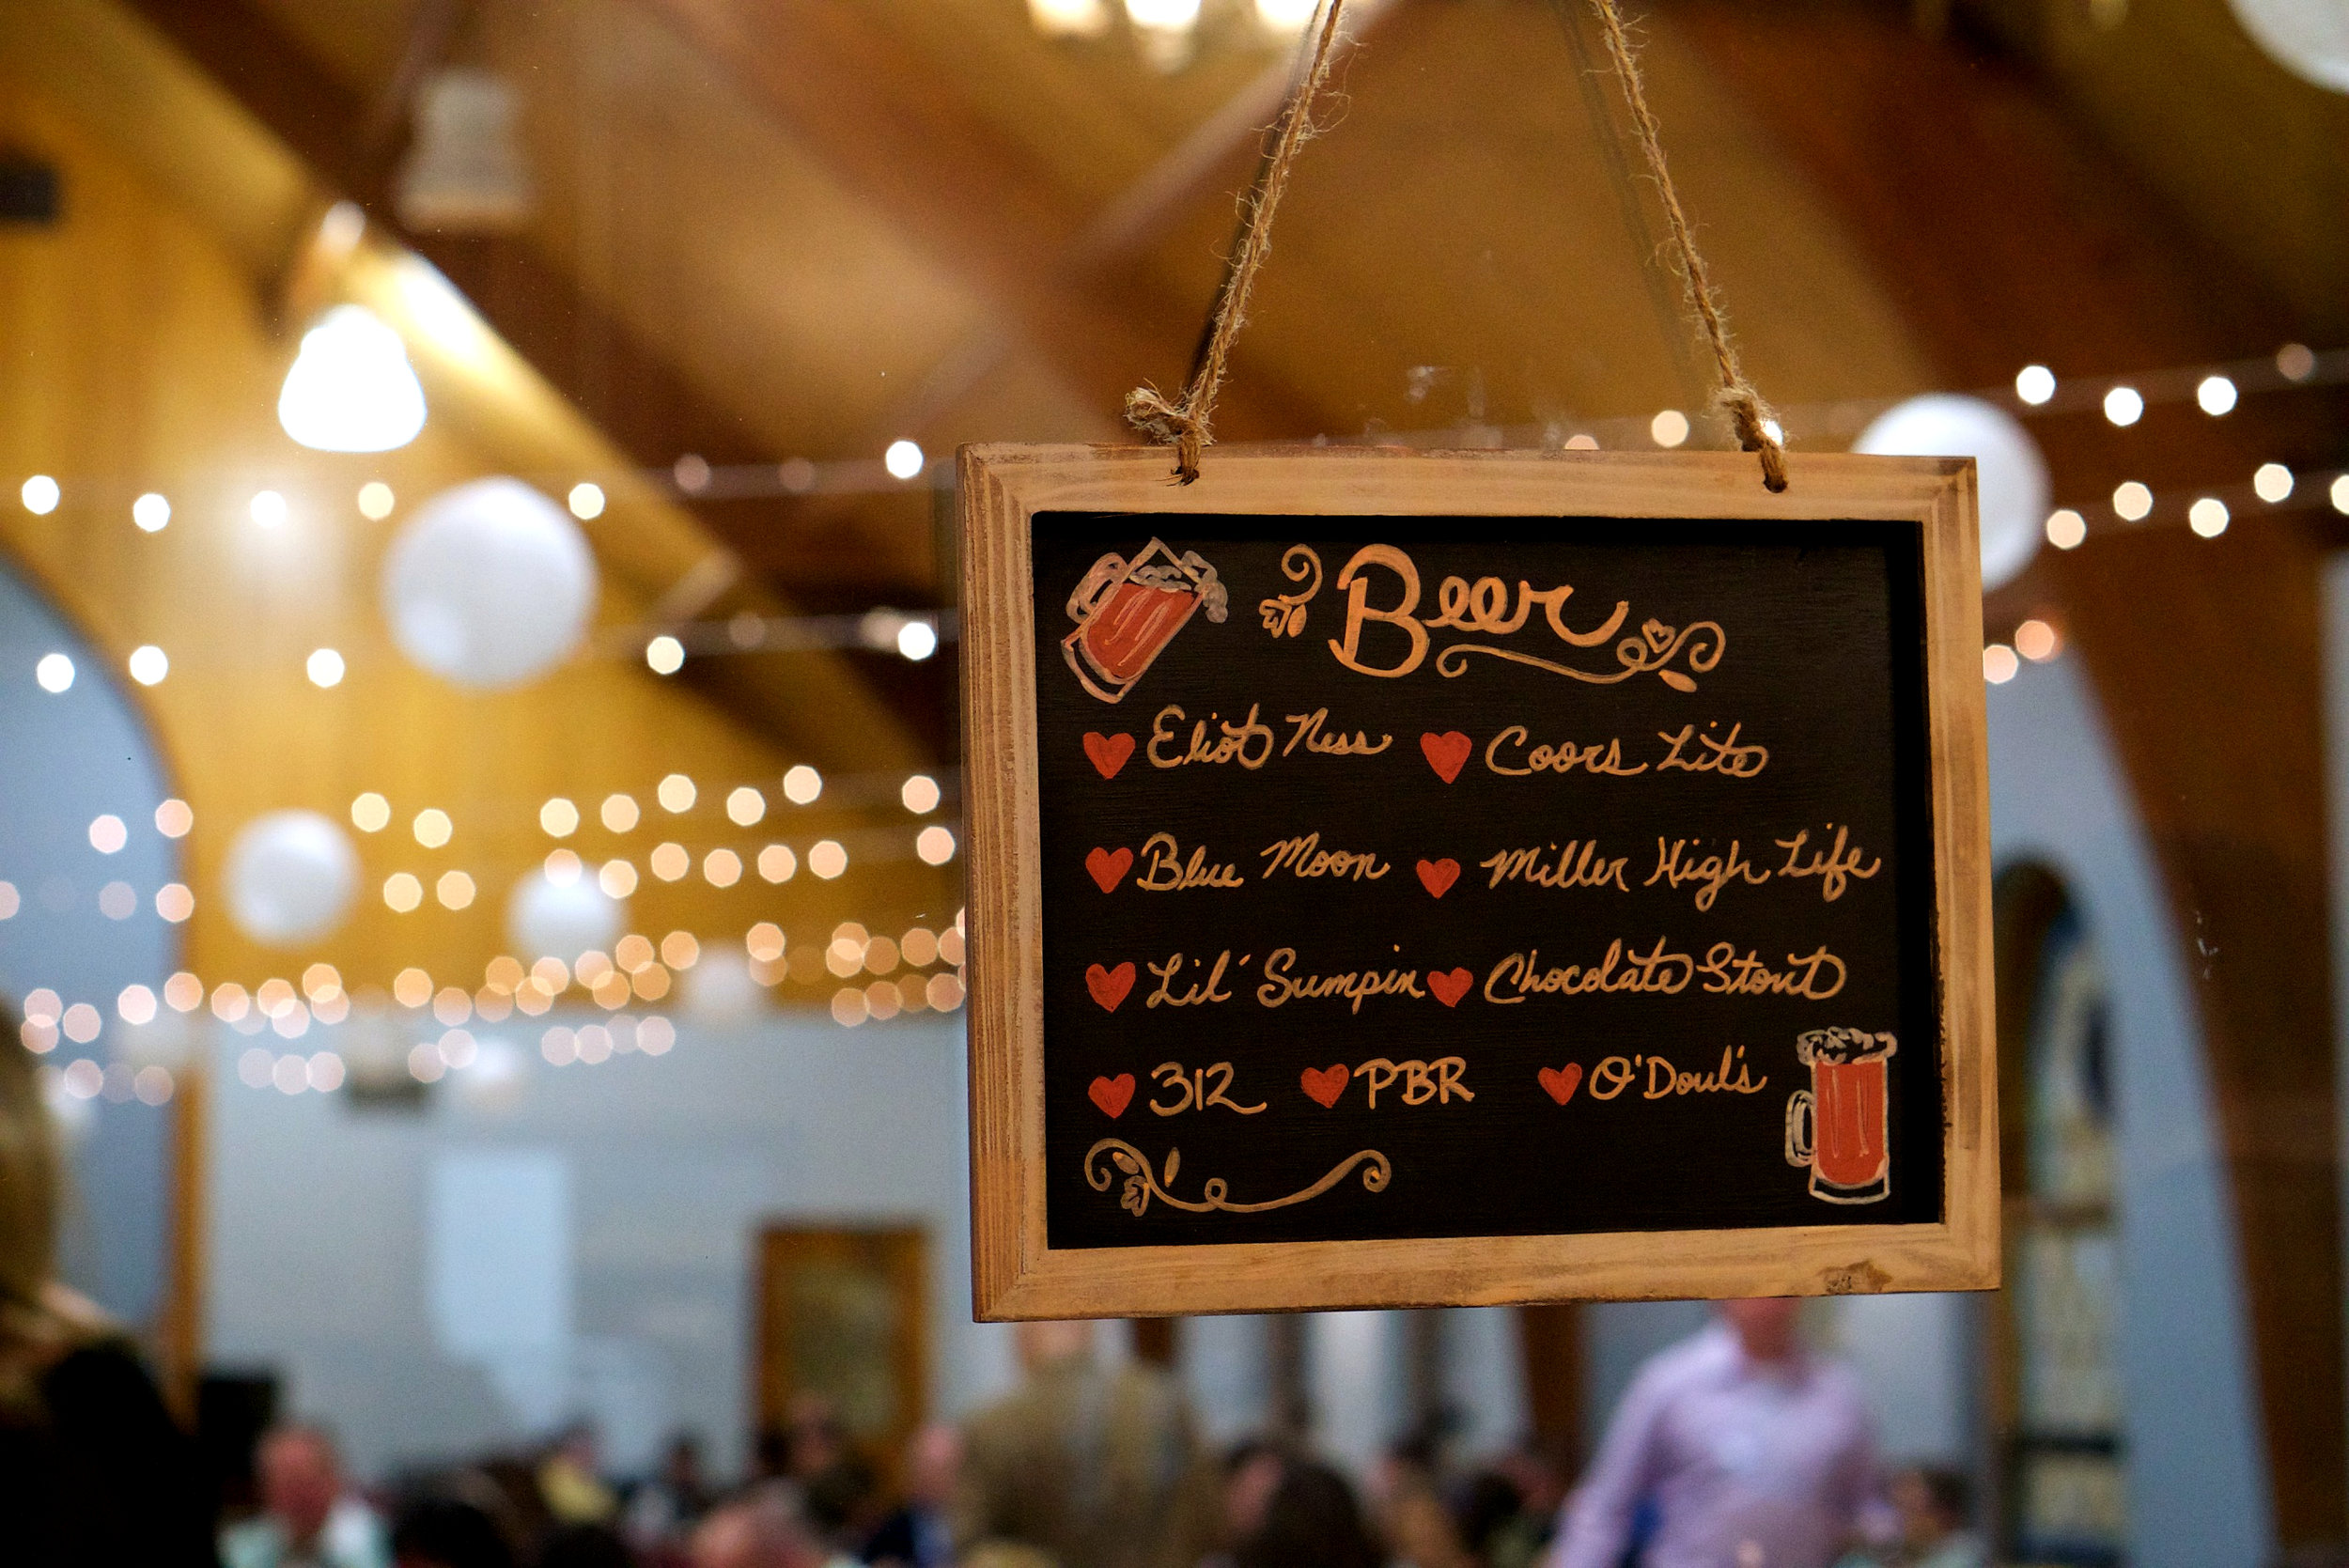 Beer
Eliot Ness Coors Lite
Blue Moon Miller High Life
Lil' Sumpin Chocolate Stout
312 PBR O'Doul's